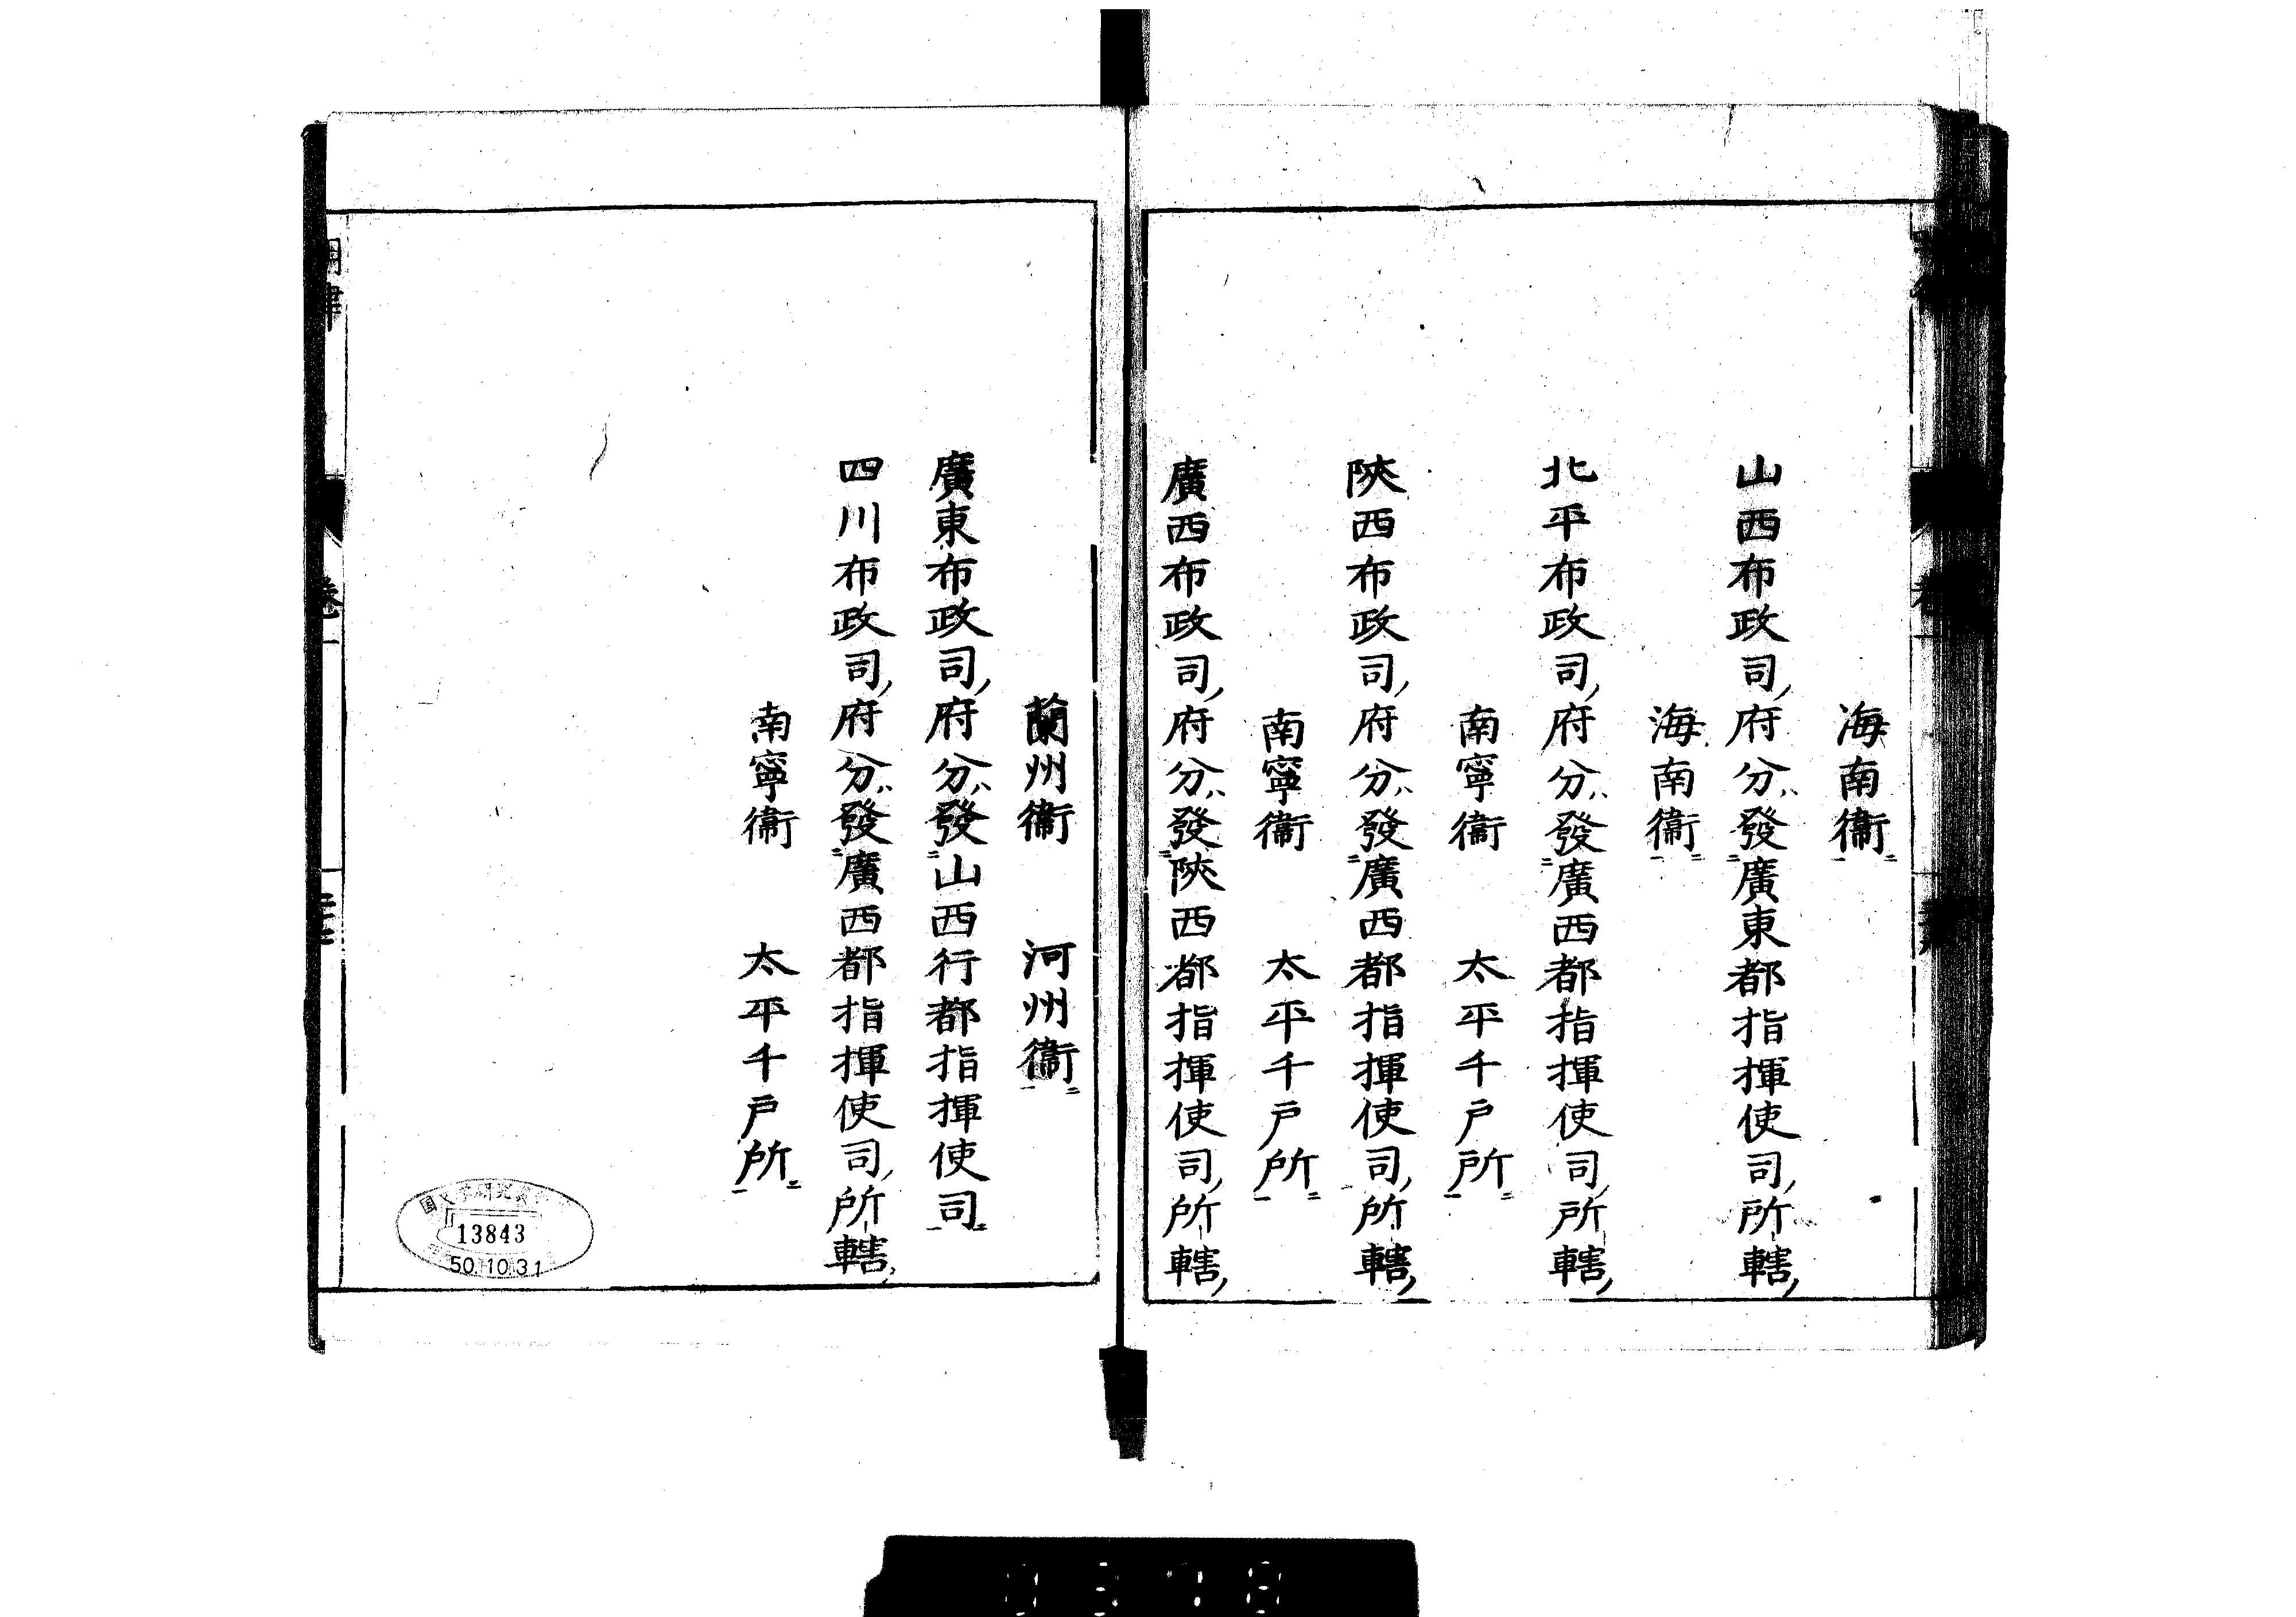 海南衞
山西布政司府分發廣東都指揮使司所轄
海南衞
北平布政司府分發廣西都指揮使司所轄
南寧衞 太平千戸所
陝西布政司府分發廣西都指揮使司所轄
南寧衞 太平千戸所
廣西布政司府分發陝西都指揮使司所轄
蘭州衞 河州衞
廣東布政司府分發山西行都指揮使司
四川布政司府分發廣西都指揮使司所轄
南寧衞 太平千戸所
卷一
13843
50.10.31